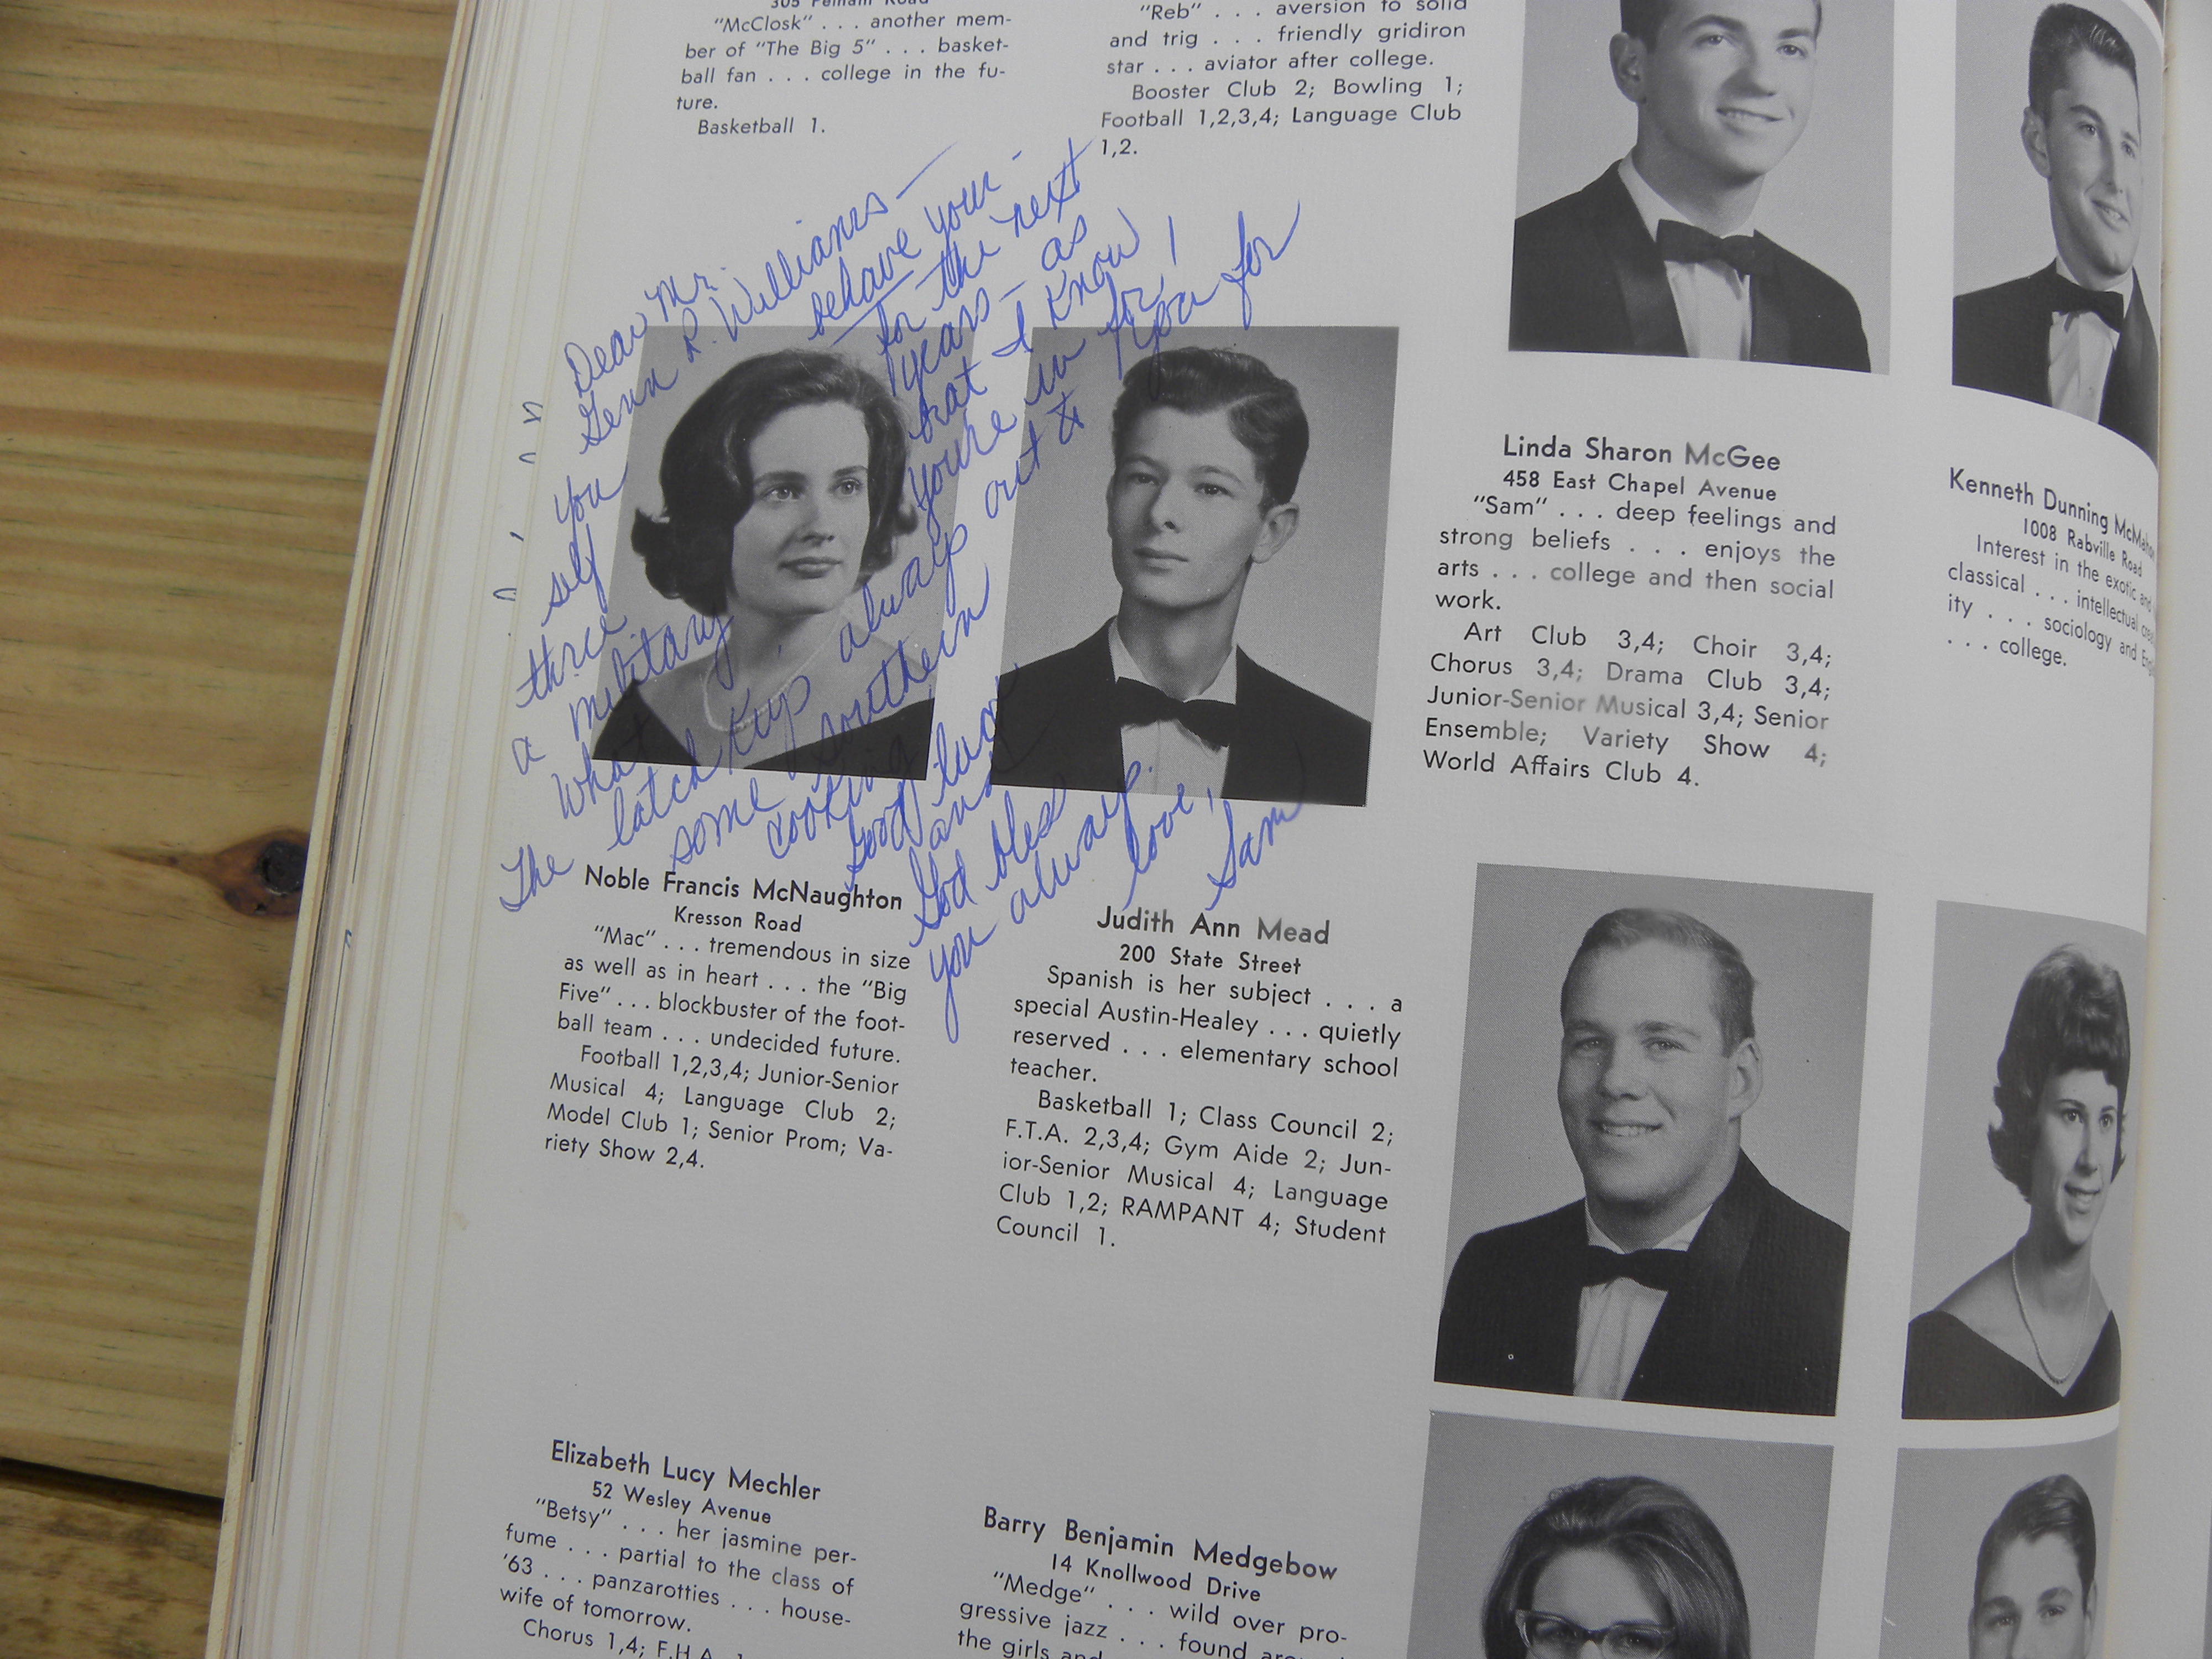 305 Pelham Road
"McClosk" . . . another mem-
ber of "The Big 5" . . . basket-
ball fan . . . college in the fu-
ture.
Basketball 1.
"Reb" . . . aversion to solid
and trig . . . friendly gridiron
star . . . aviator after college.
Booster Club 2; Bowling 1;
Football 1,2,3,4; Language Club
1,2.
Dear Mr.
R. Williams —
you behave your-
self for the next
three years - as
a military brat I know
what you're in for!
The latch always out to you for
some southern
cooking
Good luck
and
God bless
you always.
love,
Sam
Linda Sharon McGee
458 East Chapel Avenue
"Sam" . . . deep feelings and
strong beliefs . . . enjoys the
arts . . . college and then social
work.
Art Club 3,4; Choir 3,4;
Chorus 3,4; Drama Club 3,4;
Junior-Senior Musical 3,4; Senior
Ensemble; Variety Show 4;
World Affairs Club 4.
Kenneth Dunning McMahon
1008 Rabville Road
Interest in the exotic and
classical . . . intellectual
ity . . . sociology and
. . . college.
Noble Francis McNaughton
Kresson Road
"Mac" . . . tremendous in size
as well as in heart . . . the "Big
Five" . . . blockbuster of the foot-
ball team . . . undecided future.
Football 1,2,3,4; Junior-Senior
Musical 4; Language Club 2;
Model Club 1; Senior Prom; Va-
riety Show 2,4.
Judith Ann Mead
200 State Street
Spanish is her subject . . . a
special Austin-Healey . . . quietly
reserved . . . elementary school
teacher.
Basketball 1; Class Council 2;
F.T.A. 2,3,4; Gym Aide 2; Jun-
ior-Senior Musical 4; Language
Club 1,2; RAMPANT 4; Student
Council 1.
Elizabeth Lucy Mechler
52 Wesley Avenue
"Betsy" . . . her jasmine per-
fume . . . partial to the class of
'63 . . . panzarotties . . . house-
wife of tomorrow.
Chorus 1,4; F.H.A. 1
Barry Benjamin Medgebow
14 Knollwood Drive
"Medge" . . . wild over pro-
gressive jazz . . . found
the girls and